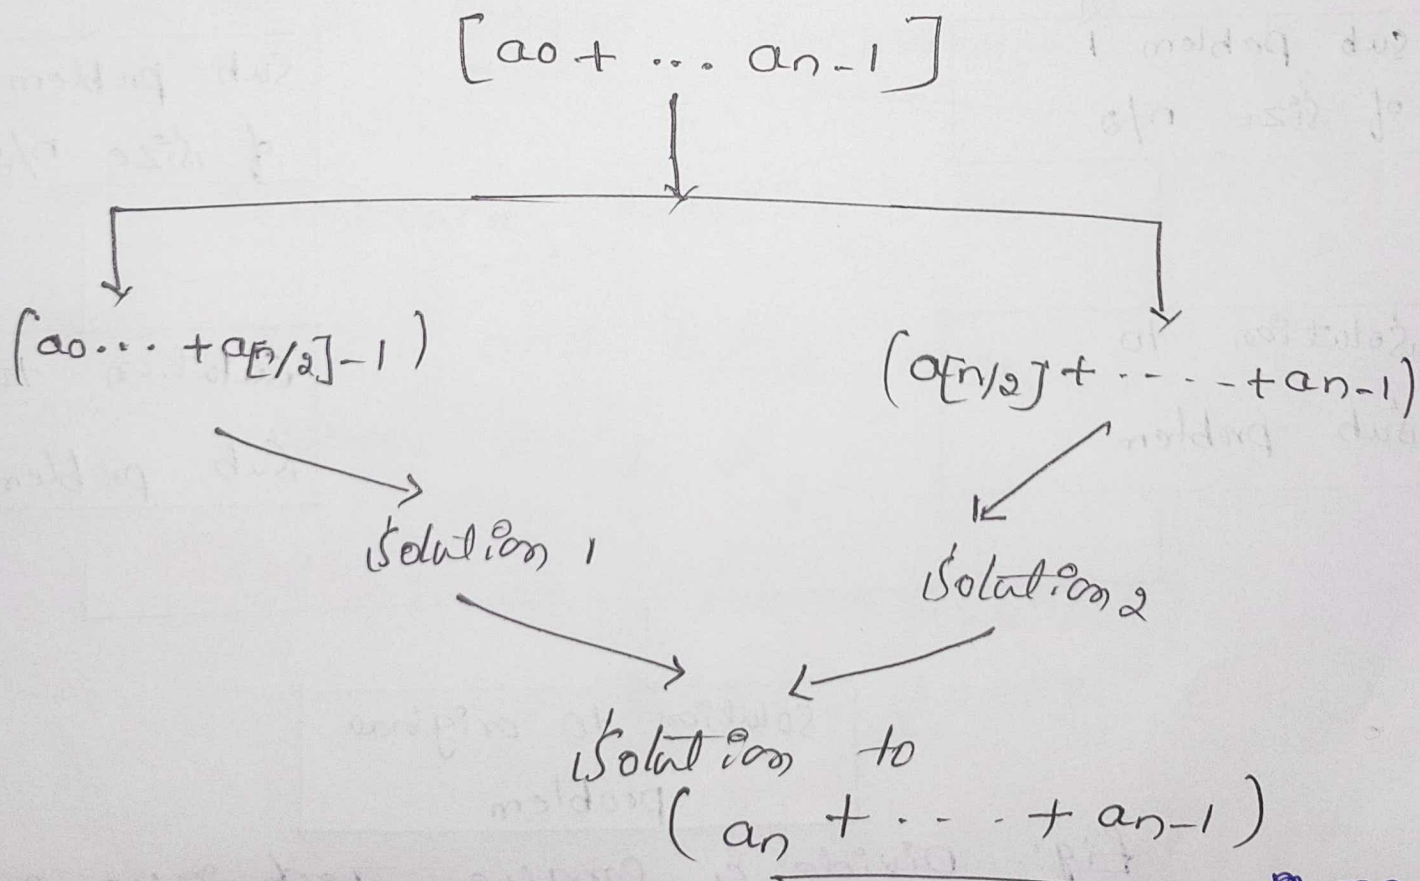 [a0 + ... an-1]
(a0... + a[n/2]-1)
(a[n/2] + ..... + an-1)
Solution 1
Solution 2
Solution to
(an + .... + an-1)